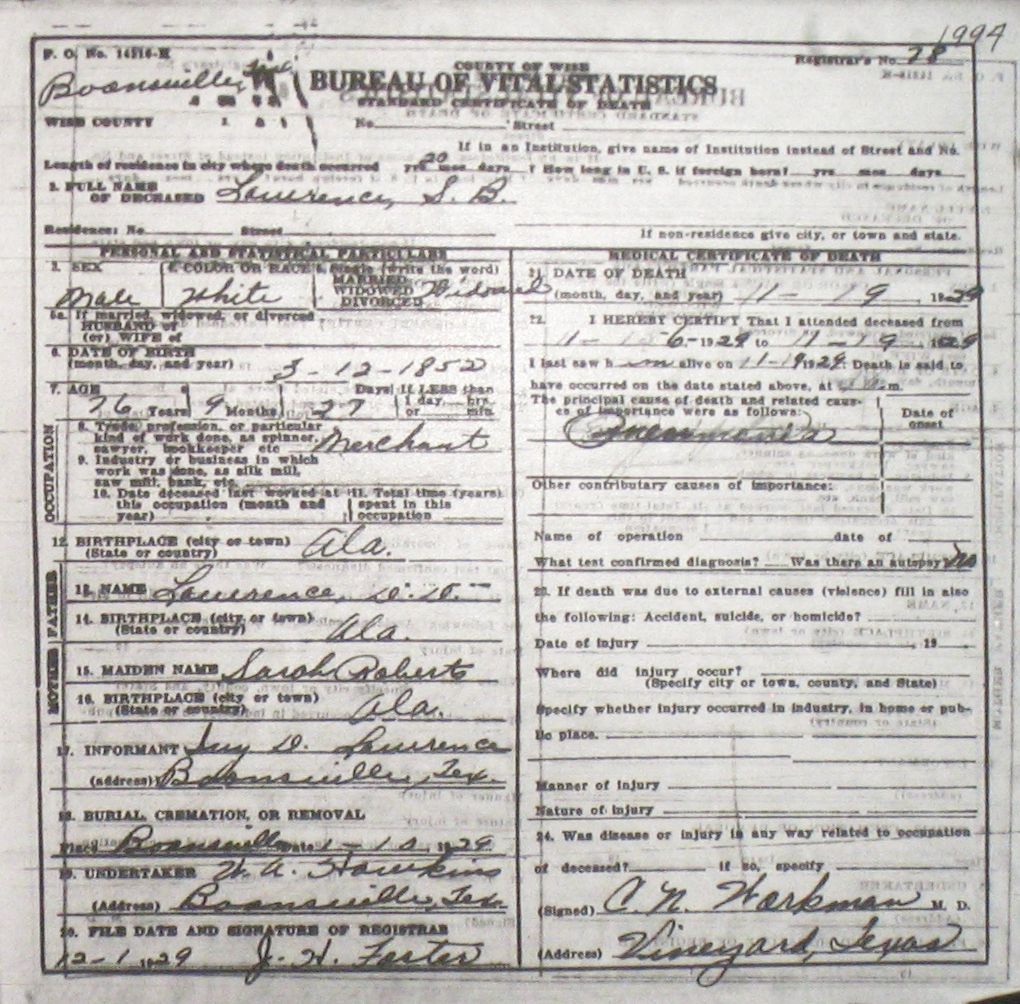 1994
F. O. No. 14216-H
COUNTY OF WISE
Registrar's No. 28
Boonsville, Texas
BUREAU OF VITAL STATISTICS
STANDARD CERTIFICATE OF DEATH
WISE COUNTY No. Street
If in an Institution, give name of Institution instead of Street and No.
Length of residence in city where death occurred 20 yrs mos days ? How long in U. S. if foreign born? yrs mos days
2. FULL NAME
OF DECEASED Lawrence, S. B.
Residence: No. Street
If non-residence give city, or town and state.
PERSONAL AND STATISTICAL PARTICULARS
3. SEX 4. COLOR OR RACE 5. Single (write the word)
MARRIED
WIDOWED Widowed
DIVORCED
Male White
5a. If married, widowed, or divorced
HUSBAND of
(or) WIFE of
6. DATE OF BIRTH
(month, day, and year) 3-12-1852
7. AGE Days If LESS than
76 Years 9 Months 27 1 day, hrs.
or min.
OCCUPATION
8. Trade, profession, or particular
kind of work done, as spinner, Merchant
sawyer, bookkeeper etc
9. Industry or business in which
work was done, as silk mill,
saw mill, bank, etc.
10. Date deceased last worked at 11. Total time (years)
this occupation (month and spent in this
year) occupation
12. BIRTHPLACE (city or town) Ala.
(State or country)
FATHER
13. NAME Lawrence, D. D.
14. BIRTHPLACE (city, or town)
(State or country) Ala.
MOTHER
15. MAIDEN NAME Sarah Roberts
16. BIRTHPLACE (city or town)
(State or country) Ala.
17. INFORMANT D. Lawrence
(address) Boonsville, Tex.
18. BURIAL, CREMATION, OR REMOVAL
Place Boonsville Date 1929
19. UNDERTAKER W. A. Hawkins
(Address) Boonsville, Tex.
20. FILE DATE AND SIGNATURE OF REGISTRAR
12-1 1929 J. H. Foster
MEDICAL CERTIFICATE OF DEATH
21 DATE OF DEATH
(month, day, and year) 11-19, 1929
22. I HEREBY CERTIFY That I attended deceased from
1929 to 11-19, 1929
I last saw him alive on 11-19 1929. Death is said to
have occurred on the date stated above, at m.
The principal cause of death and related caus-
es of importance were as follows: Date of
onset
Pneumonia
Other contributary causes of importance:
Name of operation date of
What test confirmed diagnosis? Was there an autopsy no
23. If death was due to external causes (violence) fill in also
the following: Accident, suicide, or homicide?
Date of injury , 19
Where did injury occur?
(Specify city or town, county, and State)
Specify whether injury occurred in industry, in home or pub-
lic place.
Manner of injury
Nature of injury
24. Was disease or injury in any way related to occupation
of deceased? if so, specify
(Signed) C. N. Workman M. D.
(Address) Vineyard, Texas